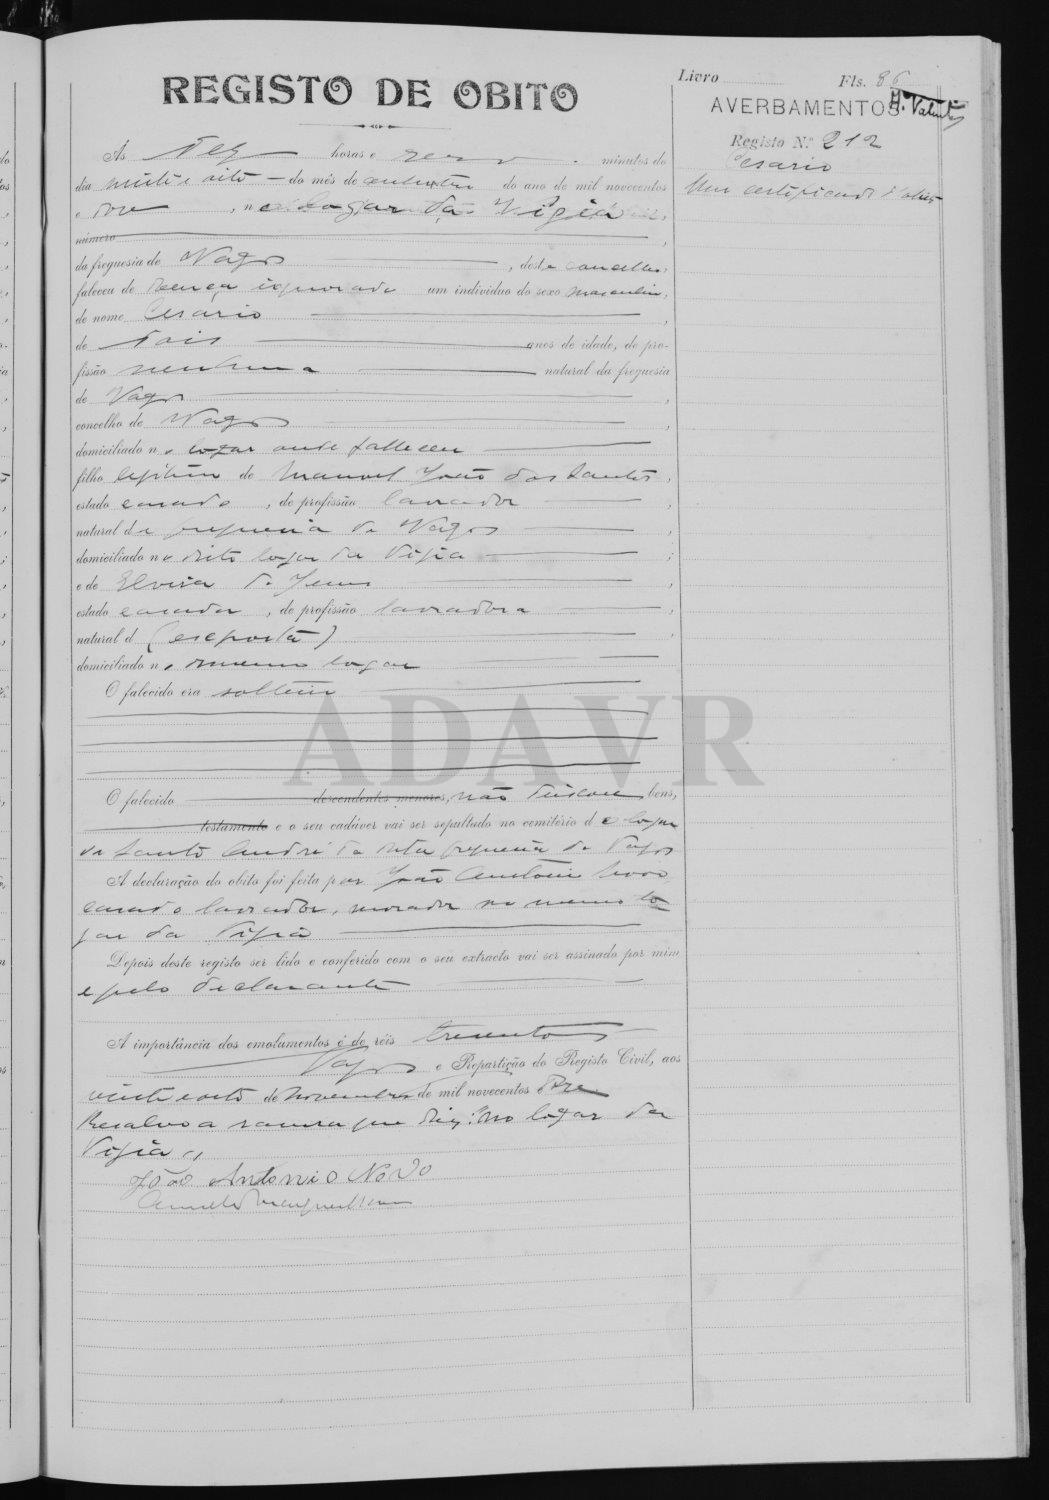 Livro Fls. 86
REGISTO DE OBITO
AVERBAMENTOS
Registo N.º 212
Cesario
Um certificado
Ás Dez horas e zero minutos do
dia vinte e oito do mês de do ano de mil novecentos
e doze, no logar da Vigia
número
da freguesia de Vagos, deste concelho,
faleceu de doença ignorada um individuo do sexo masculino,
de nome Cesario
de dois anos de idade, de pro-
fissão nenhuma natural da freguesia
de Vagos,
concelho de Vagos,
domiciliado no logar onde falleceu
filho legitimo de Manuel João dos Santos,
estado casado, de profissão lavrador,
natural da freguesia de Vagos,
domiciliado no dito logar da Vigia;
e de Elvira de Jesus,
estado casada, de profissão lavradora,
natural d (exposta),
domiciliado no mesmo logar
O falecido era solteiro
ADAVR
O falecido descendentes menores, não deixou bens,
testamento e o seu cadáver vai ser sepultado no cemitério do logar
de Santo André da dita freguesia de Vagos
A declaração do obito foi feita por João Antonio Novo
casado lavrador, morador no mesmo lo-
gar da Vigia
Depois deste registo ser lido e conferido com o seu extracto vai ser assinado por mim
e pelo declarante
A importância dos emolumentos é de réis trezentos
Vagos e Repartição do Registo Civil, aos
vinte e oito de Novembro de mil novecentos e doze
Resalvo a rasura que diz: no logar da
Vigia
João Antonio Novo